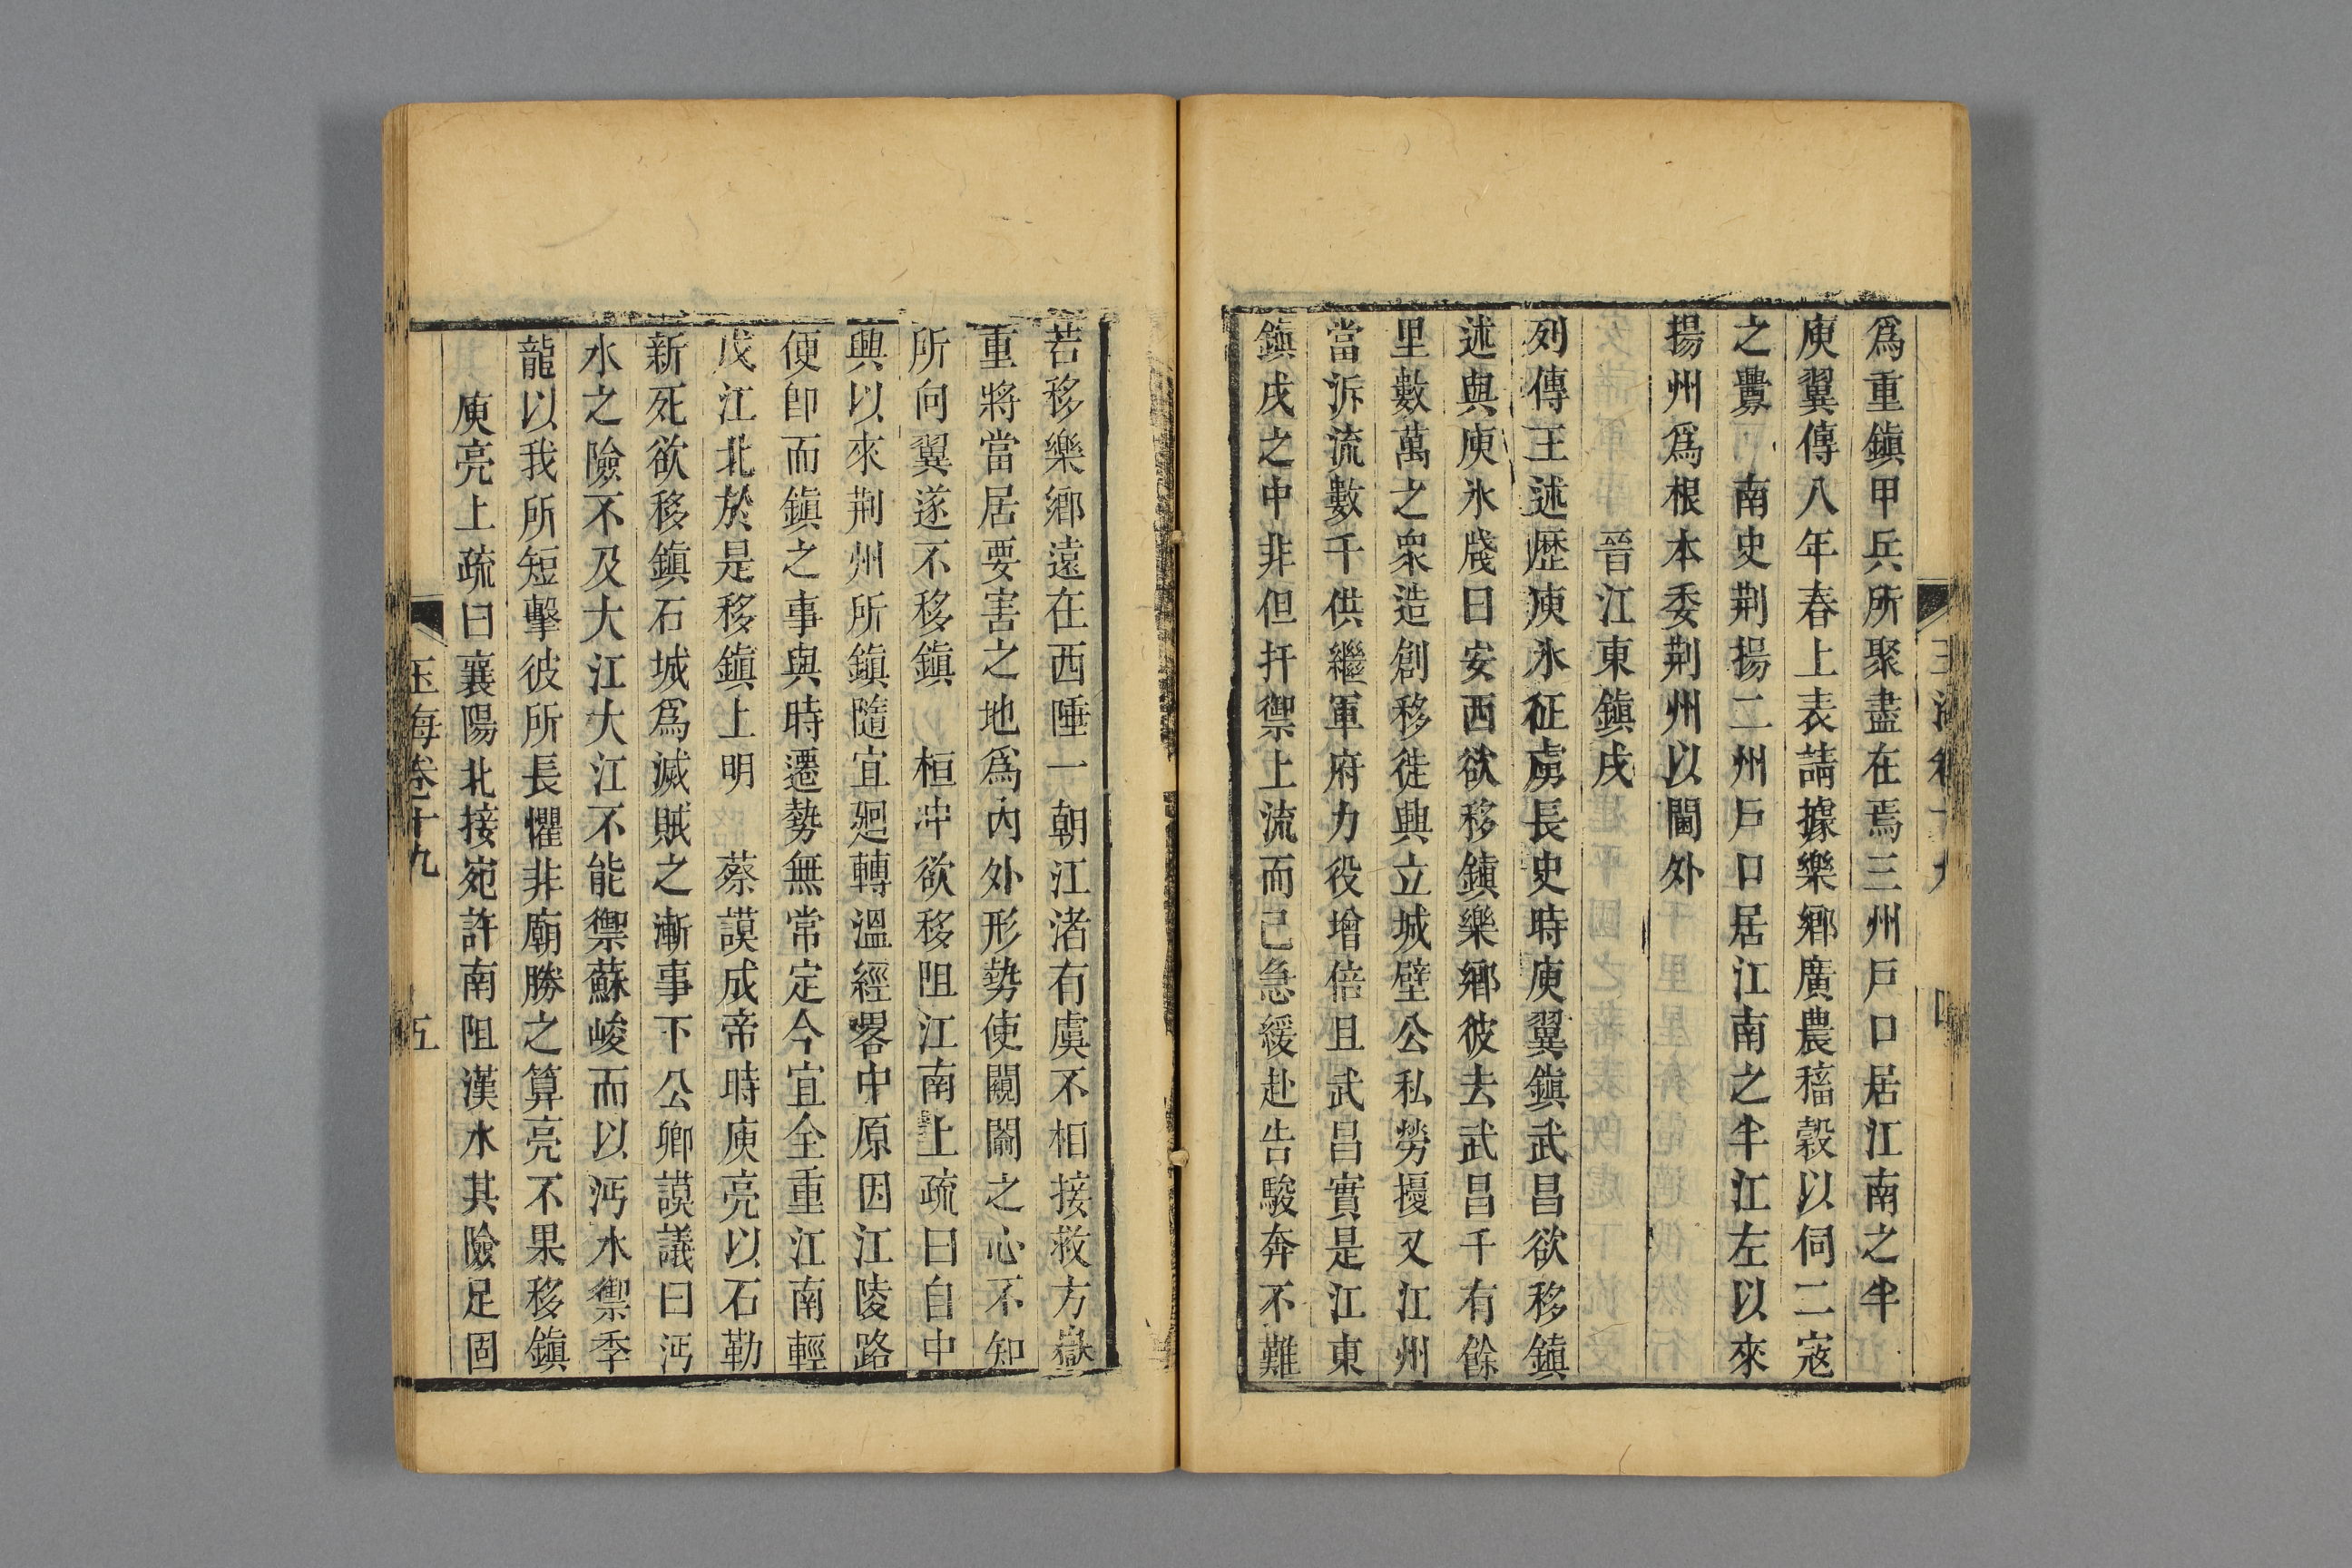 爲重鎮甲兵所聚盡在焉三州戸口居江南之半
庾翼傳八年春上表請據樂鄉廣農稸穀以伺二寇
之釁　南史荆揚二州戸口居江南之半江左以來
揚州爲根本委荆州以閫外
晉江東鎮戍
列傳王述歴庾氷征虜長史時庾翼鎮武昌欲移鎮
述與庾氷牋曰安西欲移鎮樂鄉彼去武昌千有餘
里數萬之衆造創移徙興立城壁公私勞擾又江州
當泝流數千供繼軍府力役增倍且武昌實是江東
鎮戍之中非但扞禦上流而已急緩赴告駿奔不難
若移樂鄉遠在西陲一朝江渚有虞不相接救方嶽
重將當居要害之地爲内外形勢使闚闟之心不知
所向翼遂不移鎮　桓冲欲移阻江南上疏曰自中
興以來荆州所鎮隨宜廻轉溫經畧中原因江陵路
便卽而鎮之事與時遷勢無常定今宜全重江南輕
戍江北於是移鎮上明　蔡謨成帝時庾亮以石勒
新死欲移鎮石城爲滅賊之漸事下公卿謨議曰沔
水之險不及大江大江不能禦蘇峻而以沔水禦季
龍以我所短擊彼所長懼非廟勝之算亮不果移鎮
庾亮上疏曰襄陽北接宛許南阻漢水其險足固
玉海卷十九　五